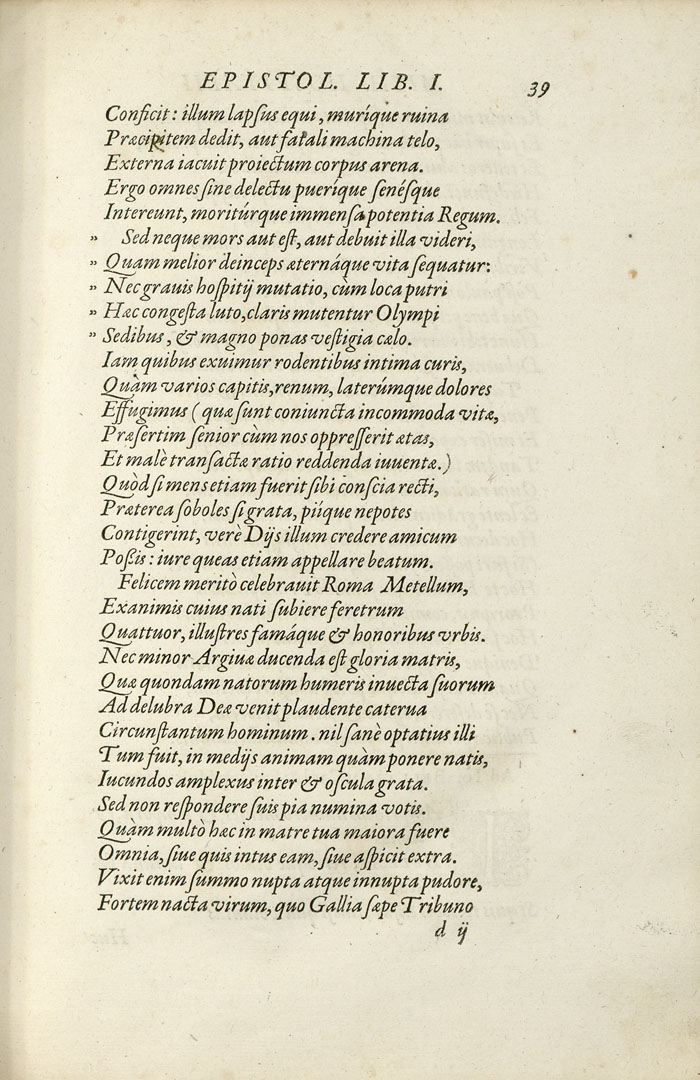 EPISTOL. LIB. I. 39
Conficit: illum lapſus equi, muríque ruina
Præcipitem dedit, aut fatali machina telo,
Externa iacuit proiectum corpus arena.
Ergo omnes ſine delectu pueríque ſenéſque
Intereunt, moritúrque immenſa potentia Regum.
” Sed neque mors aut eſt, aut debuit illa videri,
” Quam melior deinceps æternáque vita ſequatur:
” Nec grauis hoſpitij mutatio, cùm loca putri
” Hæc congeſta luto, claris mutentur Olympi
” Sedibus, & magno ponas veſtigia cælo.
Iam quibus exuimur rodentibus intima curis,
Quàm varios capitis, renum, laterúmque dolores
Effugimus (quæ ſunt coniuncta incommoda vitæ,
Præſertim ſenior cùm nos oppreſſerit ætas,
Et malè tranſactæ ratio reddenda iuuentæ.)
Quòd ſi mens etiam fuerit ſibi conſcia recti,
Præterea ſoboles ſi grata, piíque nepotes
Contigerint, verè Dijs illum credere amicum
Poßis: iure queas etiam appellare beatum.
Felicem meritò celebrauit Roma Metellum,
Exanimis cuius nati ſubiere feretrum
Quattuor, illuſtres famáque & honoribus vrbis.
Nec minor Argiuæ ducenda eſt gloria matris,
Quæ quondam natorum humeris inuecta ſuorum
Ad delubra Deæ venit plaudente caterua
Circunſtantum hominum. nil ſanè optatius illi
Tum fuit, in medijs animam quàm ponere natis,
Iucundos amplexus inter & oſcula grata.
Sed non reſpondere ſuis pia numina votis.
Quàm multò hæc in matre tua maiora fuere
Omnia, ſiue quis intus eam, ſiue aſpicit extra.
Vixit enim ſummo nupta atque innupta pudore,
Fortem nacta virum, quo Gallia ſæpe Tribuno
d ij